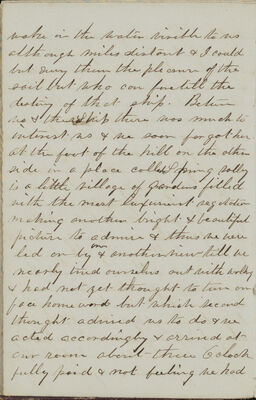 wake in the water visible to us
although miles distant & I could
but envy them the pleasure of the
sail but who can foretell the
destiny of that ship. Between
us & the ship there was much to
interest us & we soon forgot her
at the foot of the hill on the other
side in a place called Spring valley
is a little village of Gardens filled
with the most luxuriant vegetation
making another bright & beautiful
picture to admire & thus we were
led on by one & another view till we
nearly tired ourselves out with walking
& had not yet thought to turn our
face home ward but which second
thought advised us to do & we
acted accordingly & arrived at
our room about three O clock
fully paid & not feeling we had